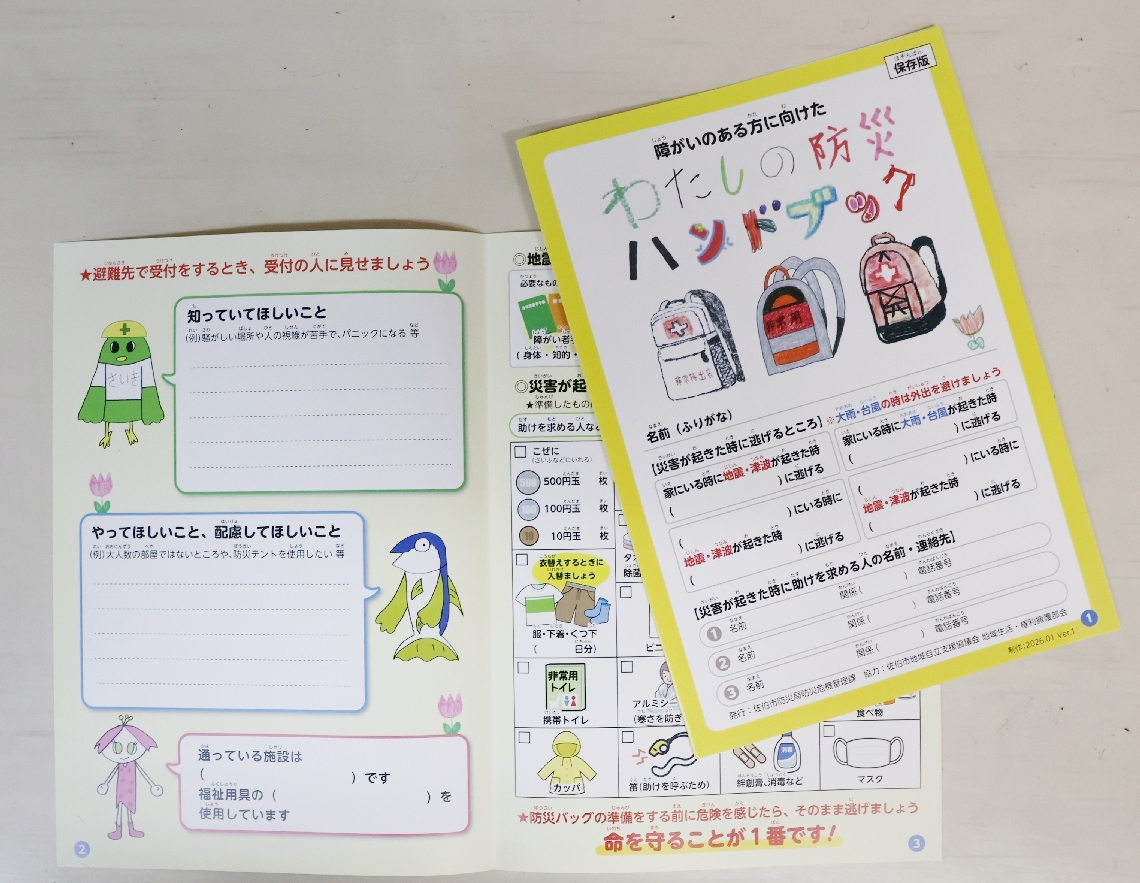 ★避難先で受付をするとき、受付の人に見せましょう
知っていてほしいこと
(例)騒がしい場所や人の視線が苦手で、パニックになる 等
さいき
やってほしいこと、配慮してほしいこと
(例)大人数の部屋ではないところや、防災テントを使用したい 等
通っている施設は
( )です
福祉用具の( )を
使用しています
2
◎地震
必要なもの
障がい者
(身体・知的・
◎災害が起
★準備したもの
助けを求める人な
こぜに
(さいふなどにいれる)
500円玉 枚
100円玉 枚
10円玉 枚
衣替えするときに
入替ましょう
服・下着・くつ下
( 日分)
除菌
非常用
トイレ
携帯トイレ
アルミシー
(寒さを防ぎ
食べ物
カッパ
笛(助けを呼ぶため)
消毒
絆創膏、消毒など
マスク
★防災バッグの準備をする前に危険を感じたら、そのまま逃げましょう
命を守ることが1番です!
3
保存版
障がいのある方に向けた
わたしの防災
ハンドブック
非常持出袋
非常用
名前(ふりがな)
【災害が起きた時に逃げるところ】※大雨・台風の時は外出を避けましょう
家にいる時に地震・津波が起きた時
( )に逃げる
家にいる時に大雨・台風が起きた時
( )に逃げる
( )にいる時に
地震・津波が起きた時
( )に逃げる
( )にいる時に
地震・津波が起きた時
( )に逃げる
【災害が起きた時に助けを求める人の名前・連絡先】
1 名前 関係( ) 電話番号
2 名前 関係( ) 電話番号
3 名前 関係( ) 電話番号
発行:佐伯市防災局防災危機管理課 協力:佐伯市地域自立支援協議会 地域生活・権利擁護部会
制作:2026.01 Ver.1
1